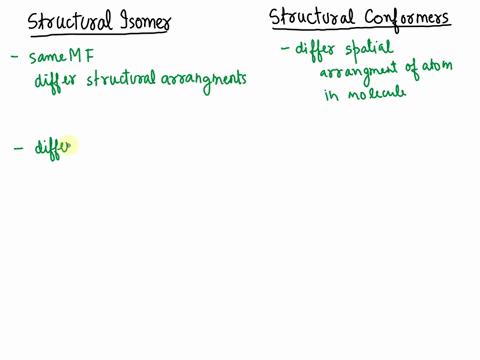 Structural Isomer
- same MF
differ structural arrangments
- differ
Structural Conformers
- differ spatial
arrangment of atom
in molecule